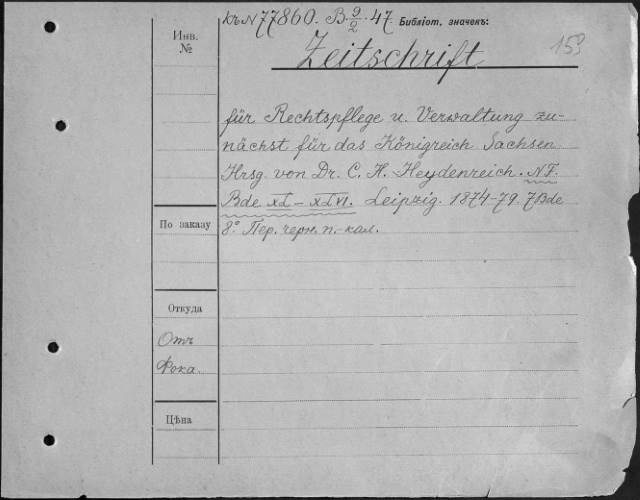 къ N 77860. В. 9/2. 47 Библіот. значекъ:
Инв.
№
Zeitschrift
153
für Rechtspflege u. Verwaltung zu-
nächst für das Königreich Sachsen
Hrsg. von Dr. C. H. Heydenreich. NF.
Bde XL–XLVI. Leipzig. 1874–79. 7Bde
По заказу
8° Пер. черн. п.-кал.
Откуда
Отъ
Фока.
Цѣна